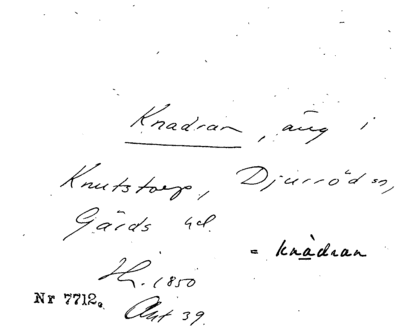 Knadran, äng i
Knutstorp, Djurröd sn,
Gärds hd.
= knàdran
H. 1850
Nr 7712. Akt 39.